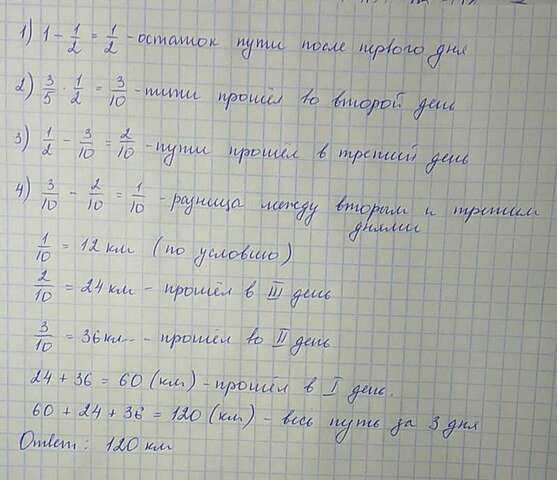 1) 1 - 1/2 = 1/2 - остаток пути после первого дня
2) 3/5 · 1/2 = 3/10 - пути прошёл во второй день
3) 1/2 - 3/10 = 2/10 - пути прошёл в третий день
4) 3/10 - 2/10 = 1/10 - разница между вторым и третьим
днями
1/10 = 12 км (по условию)
2/10 = 24 км - прошёл в III день
3/10 = 36 км - прошёл во II день
24 + 36 = 60 (км) - прошёл в I день.
60 + 24 + 36 = 120 (км) - весь путь за 3 дня
Ответ: 120 км